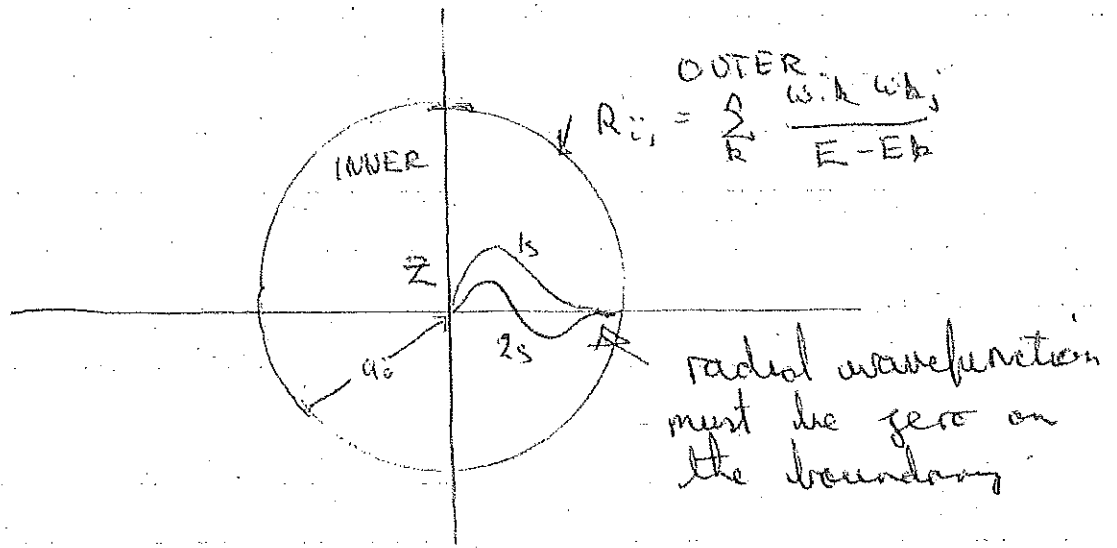 OUTER
R_{ij} = \sum_k \frac{w_{ik} w_{kj}}{E - E_k}
INNER
1s
Z
2s
a_0
radial wavefunction
must be zero on
the boundary